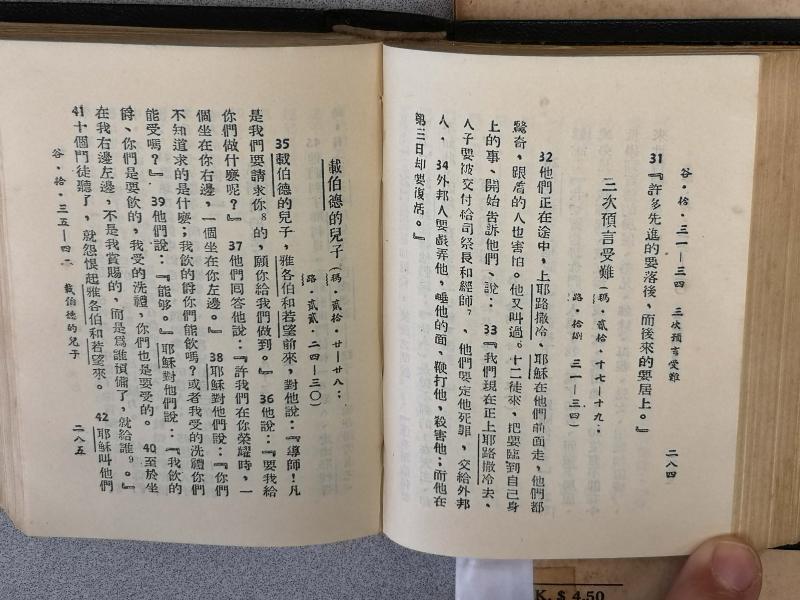 谷・拾・三一—三四　三次預言受難　二八四
31『許多先進的要落後，而後來的要居上。』
三次預言受難（瑪・貳拾・十七—十九；
路・拾捌　三一—三四）
32他們正在途中，上耶路撒冷，耶穌在他們前面走，他們都
驚奇，跟着的人也害怕。他又叫過十二徒來，把要臨到自己身
上的事、開始告訴他們、說：33『我們現在正上耶路撒冷去、
人子要被交付給司祭長和經師7，他們要定他死罪，交給外邦
人，34外邦人要戲弄他，唾他的面，鞭打他，殺害他；而他在
第三日却要復活。』
載伯德的兒子（瑪・貳拾・廿—廿八；
路・貳貳・二四—三〇）
35載伯德的兒子，雅各伯和若望前來，對他說：『導師！凡
是我們要請求你8的，願你給我們做到。』36他說：『要我給
你們做什麼呢？』37他們回答他說：『許我們在你榮耀時，一
個坐在你右邊，一個坐在你左邊。』38耶穌對他們說：『你們
不知道求的是什麼；我飲的爵你們能飲嗎？或者我受的洗禮你們
能受嗎？』39他們說：『能够。』耶穌對他們說：『我飲的
爵、你們是要飲的，我受的洗禮，你們也是要受的。40至於坐
在我右邊左邊，不是我賞賜的，而是爲誰預備了，就給誰9。』
41十個門徒聽了，就怨恨起雅各伯和若望來。42耶穌叫他們
谷・拾・三五—四二　載伯德的兒子　二八五
K. $ 4.50